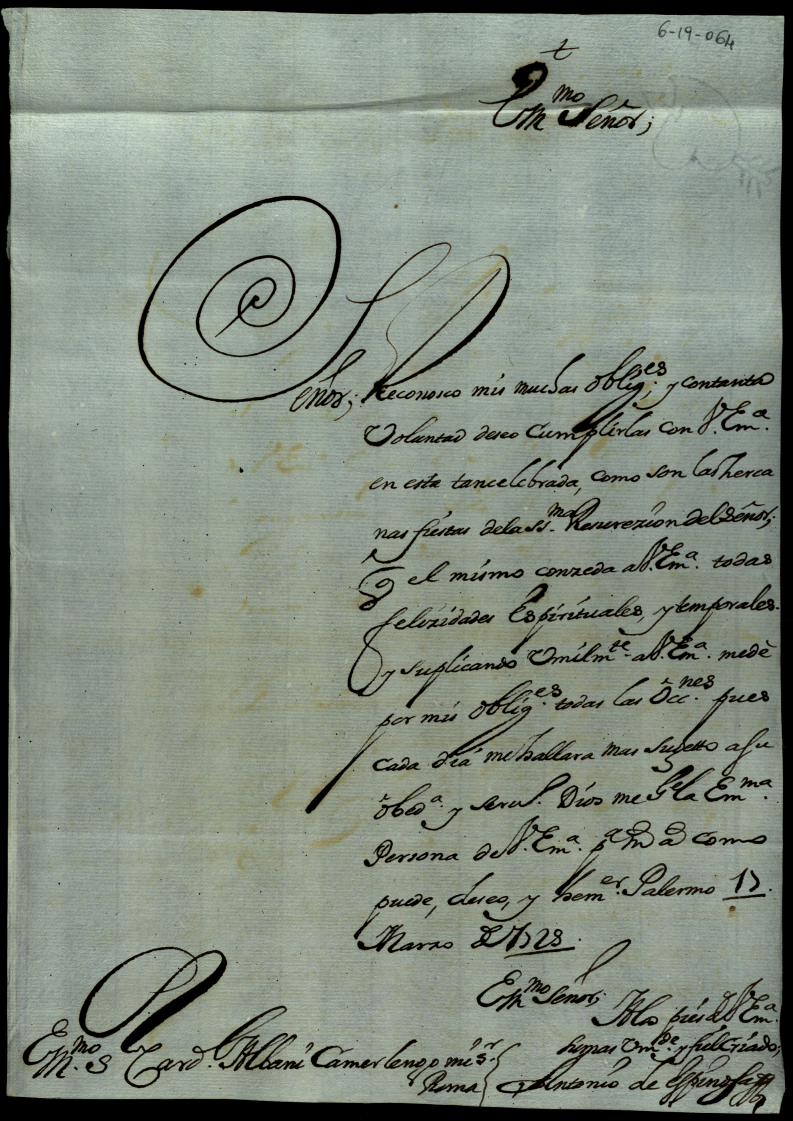 6-19-064
t
Em.mo Señor;
Señor; Reconosco mis muchas oblig.es; y contanta
Voluntad deseo Cumplirlas con V. Em.a
en esta tancelebrada, como son las
nas fiestas dela SS.ma Resurezion del Señor;
Q el mismo conzeda a V. Em.a todas
felizidades Espirituales, y temporales.
y suplicando Umilm.te a V. Em.a medè
por mis oblig.es todas las Occ.nes pues
cada dia me hallara mas sugetto a su
obed.a y Dios me G.e la Em.ma
Persona de V. Em.a como
puede, deseo, y Palermo 17
Marzo de 1728.
Em.mo Señor;
A los pies de V. Em.a
su mas Um.de y fiel Criado;
Em.mo S Card. Albani Camerlengo mi s.r
Roma
Antonio de Espinosa